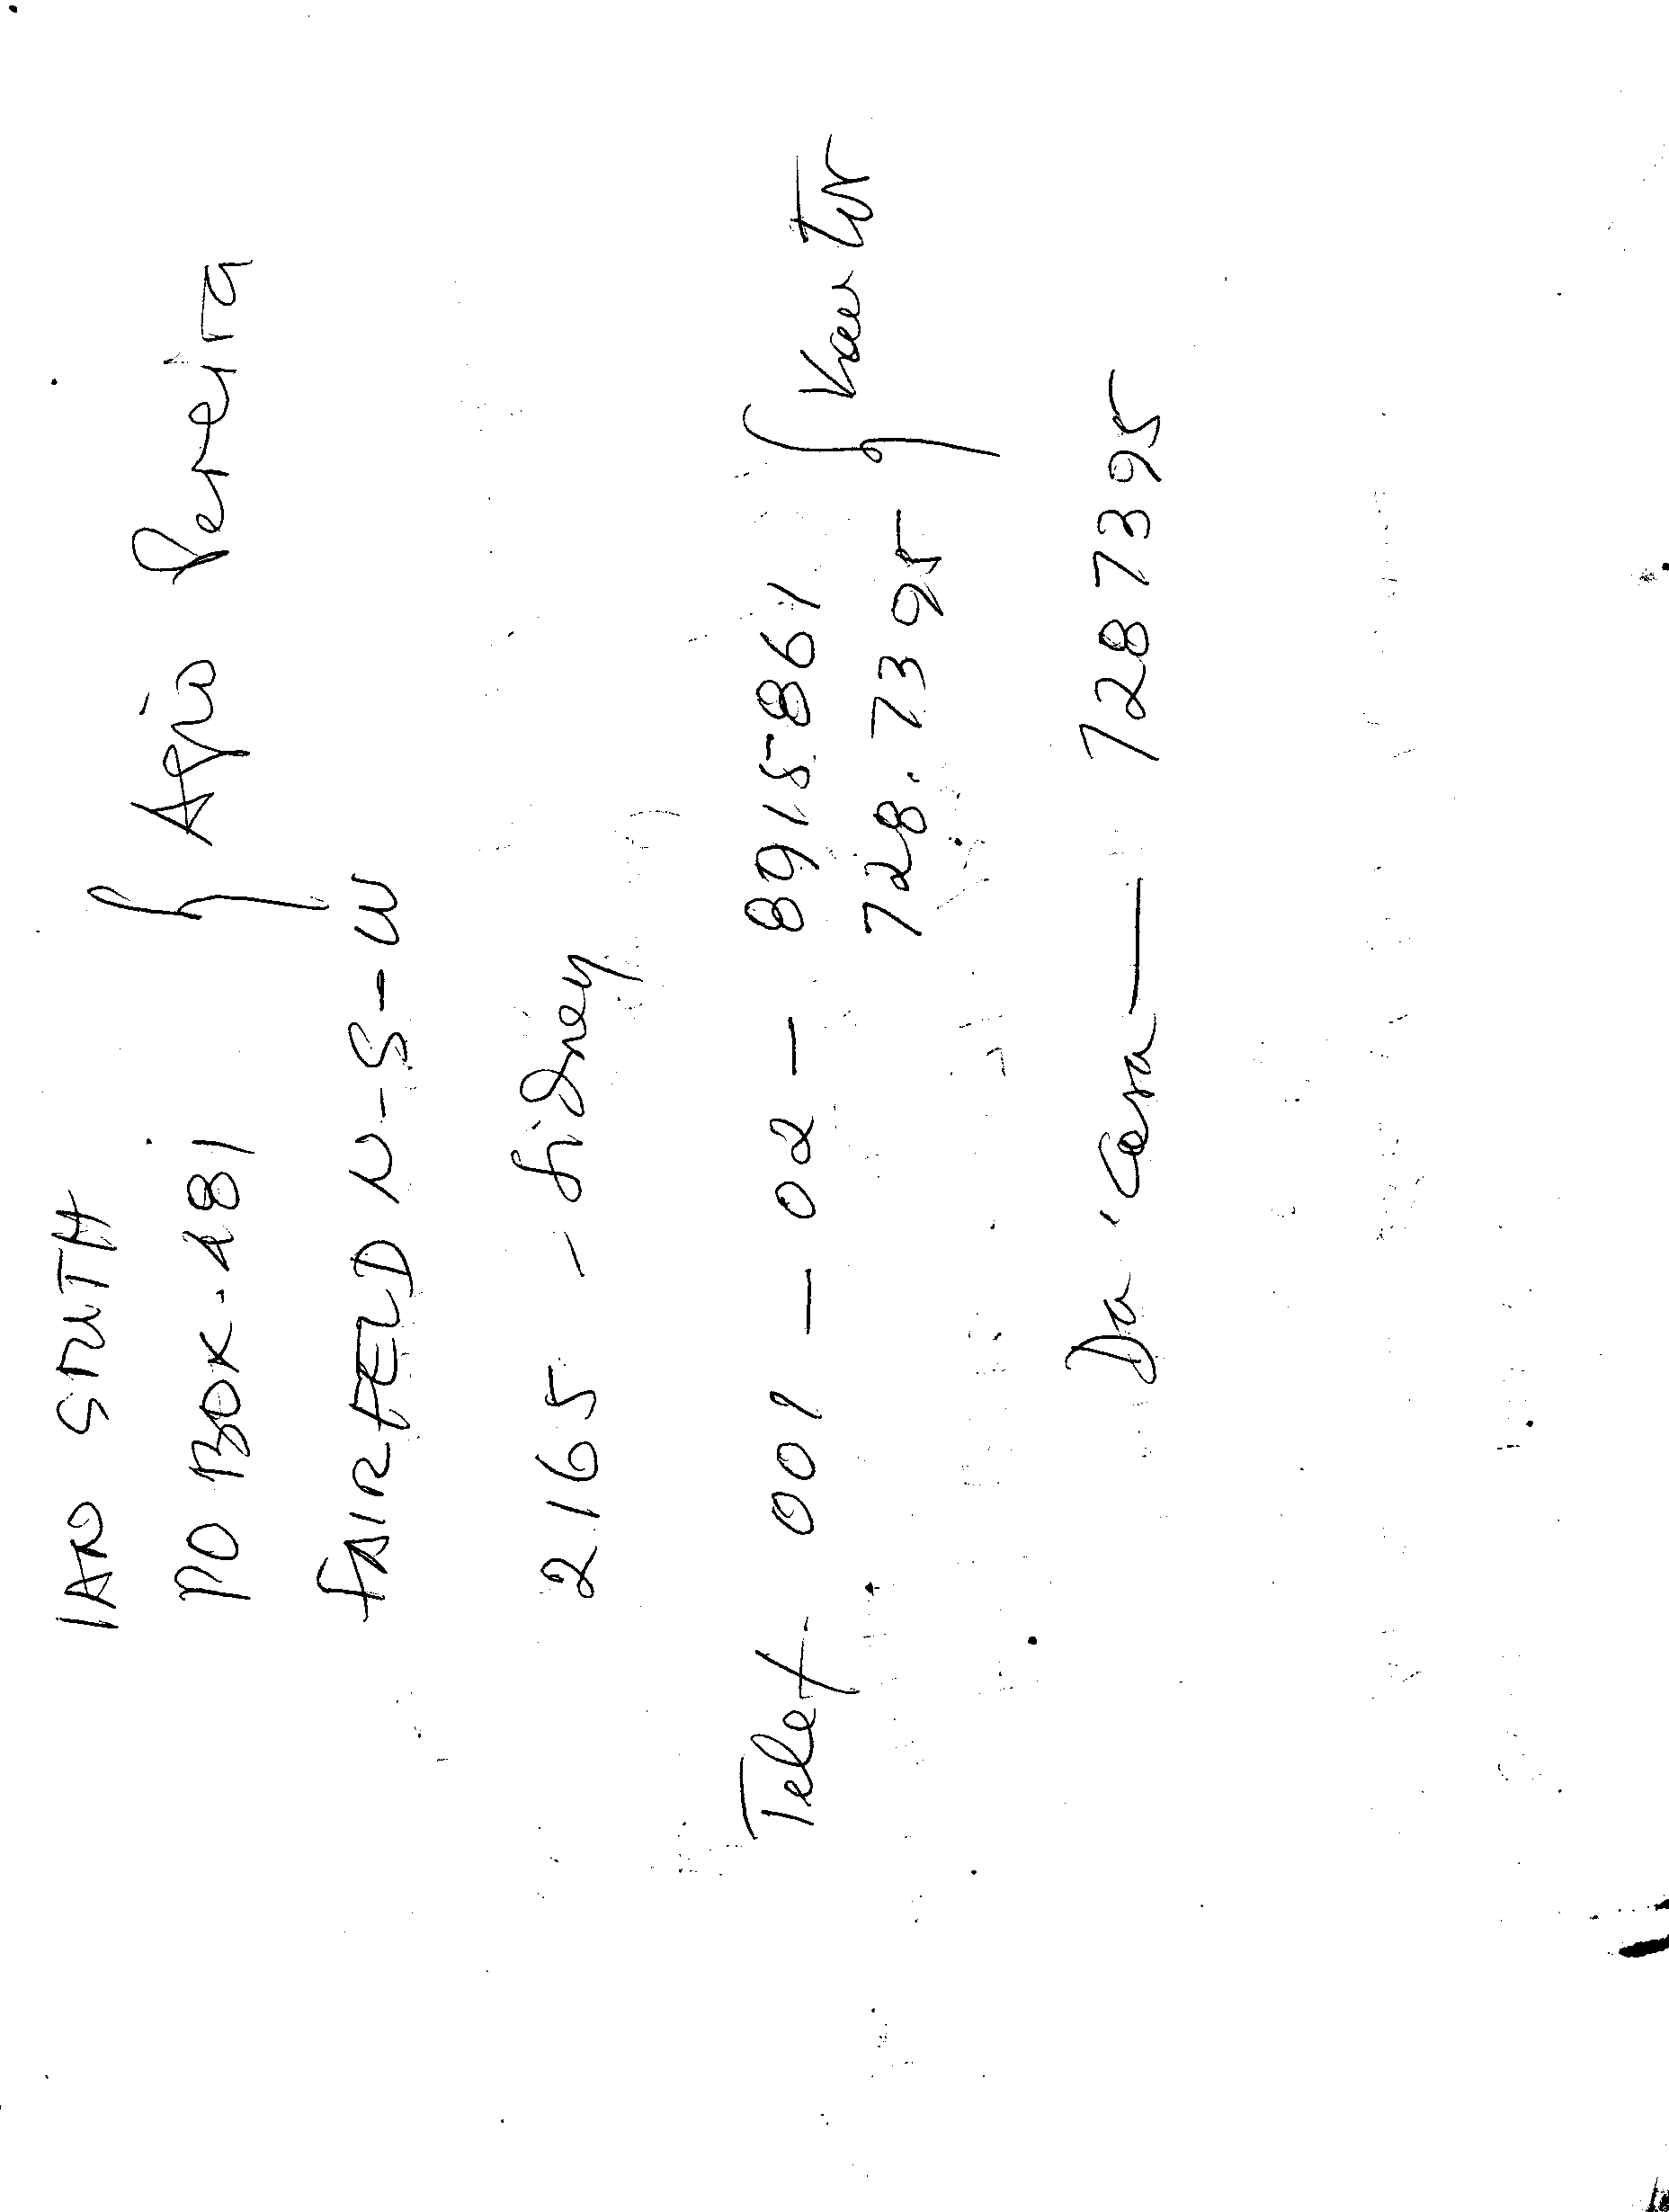 IAN SMITH
PO BOX. 481 } Agio Pereira
FAIRFELD N-S-W
2165 - Sidney
Telef. 001 - 02 - 8915861 } Kantor
728.7395
Da Casa — 7287395